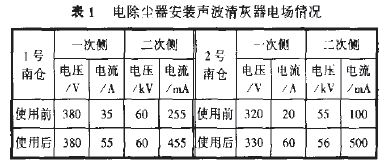 表 1 电除尘器安装声波清灰器电场情况
1 号南仓 一次侧 二次侧 2 号南仓 一次侧 二次侧
电压/V 电流/A 电压/kV 电流/mA 电压/V 电流/A 电压/kV 电流/mA
使用前 380 35 60 255 使用前 320 20 55 100
使用后 380 55 60 455 使用后 330 60 56 500